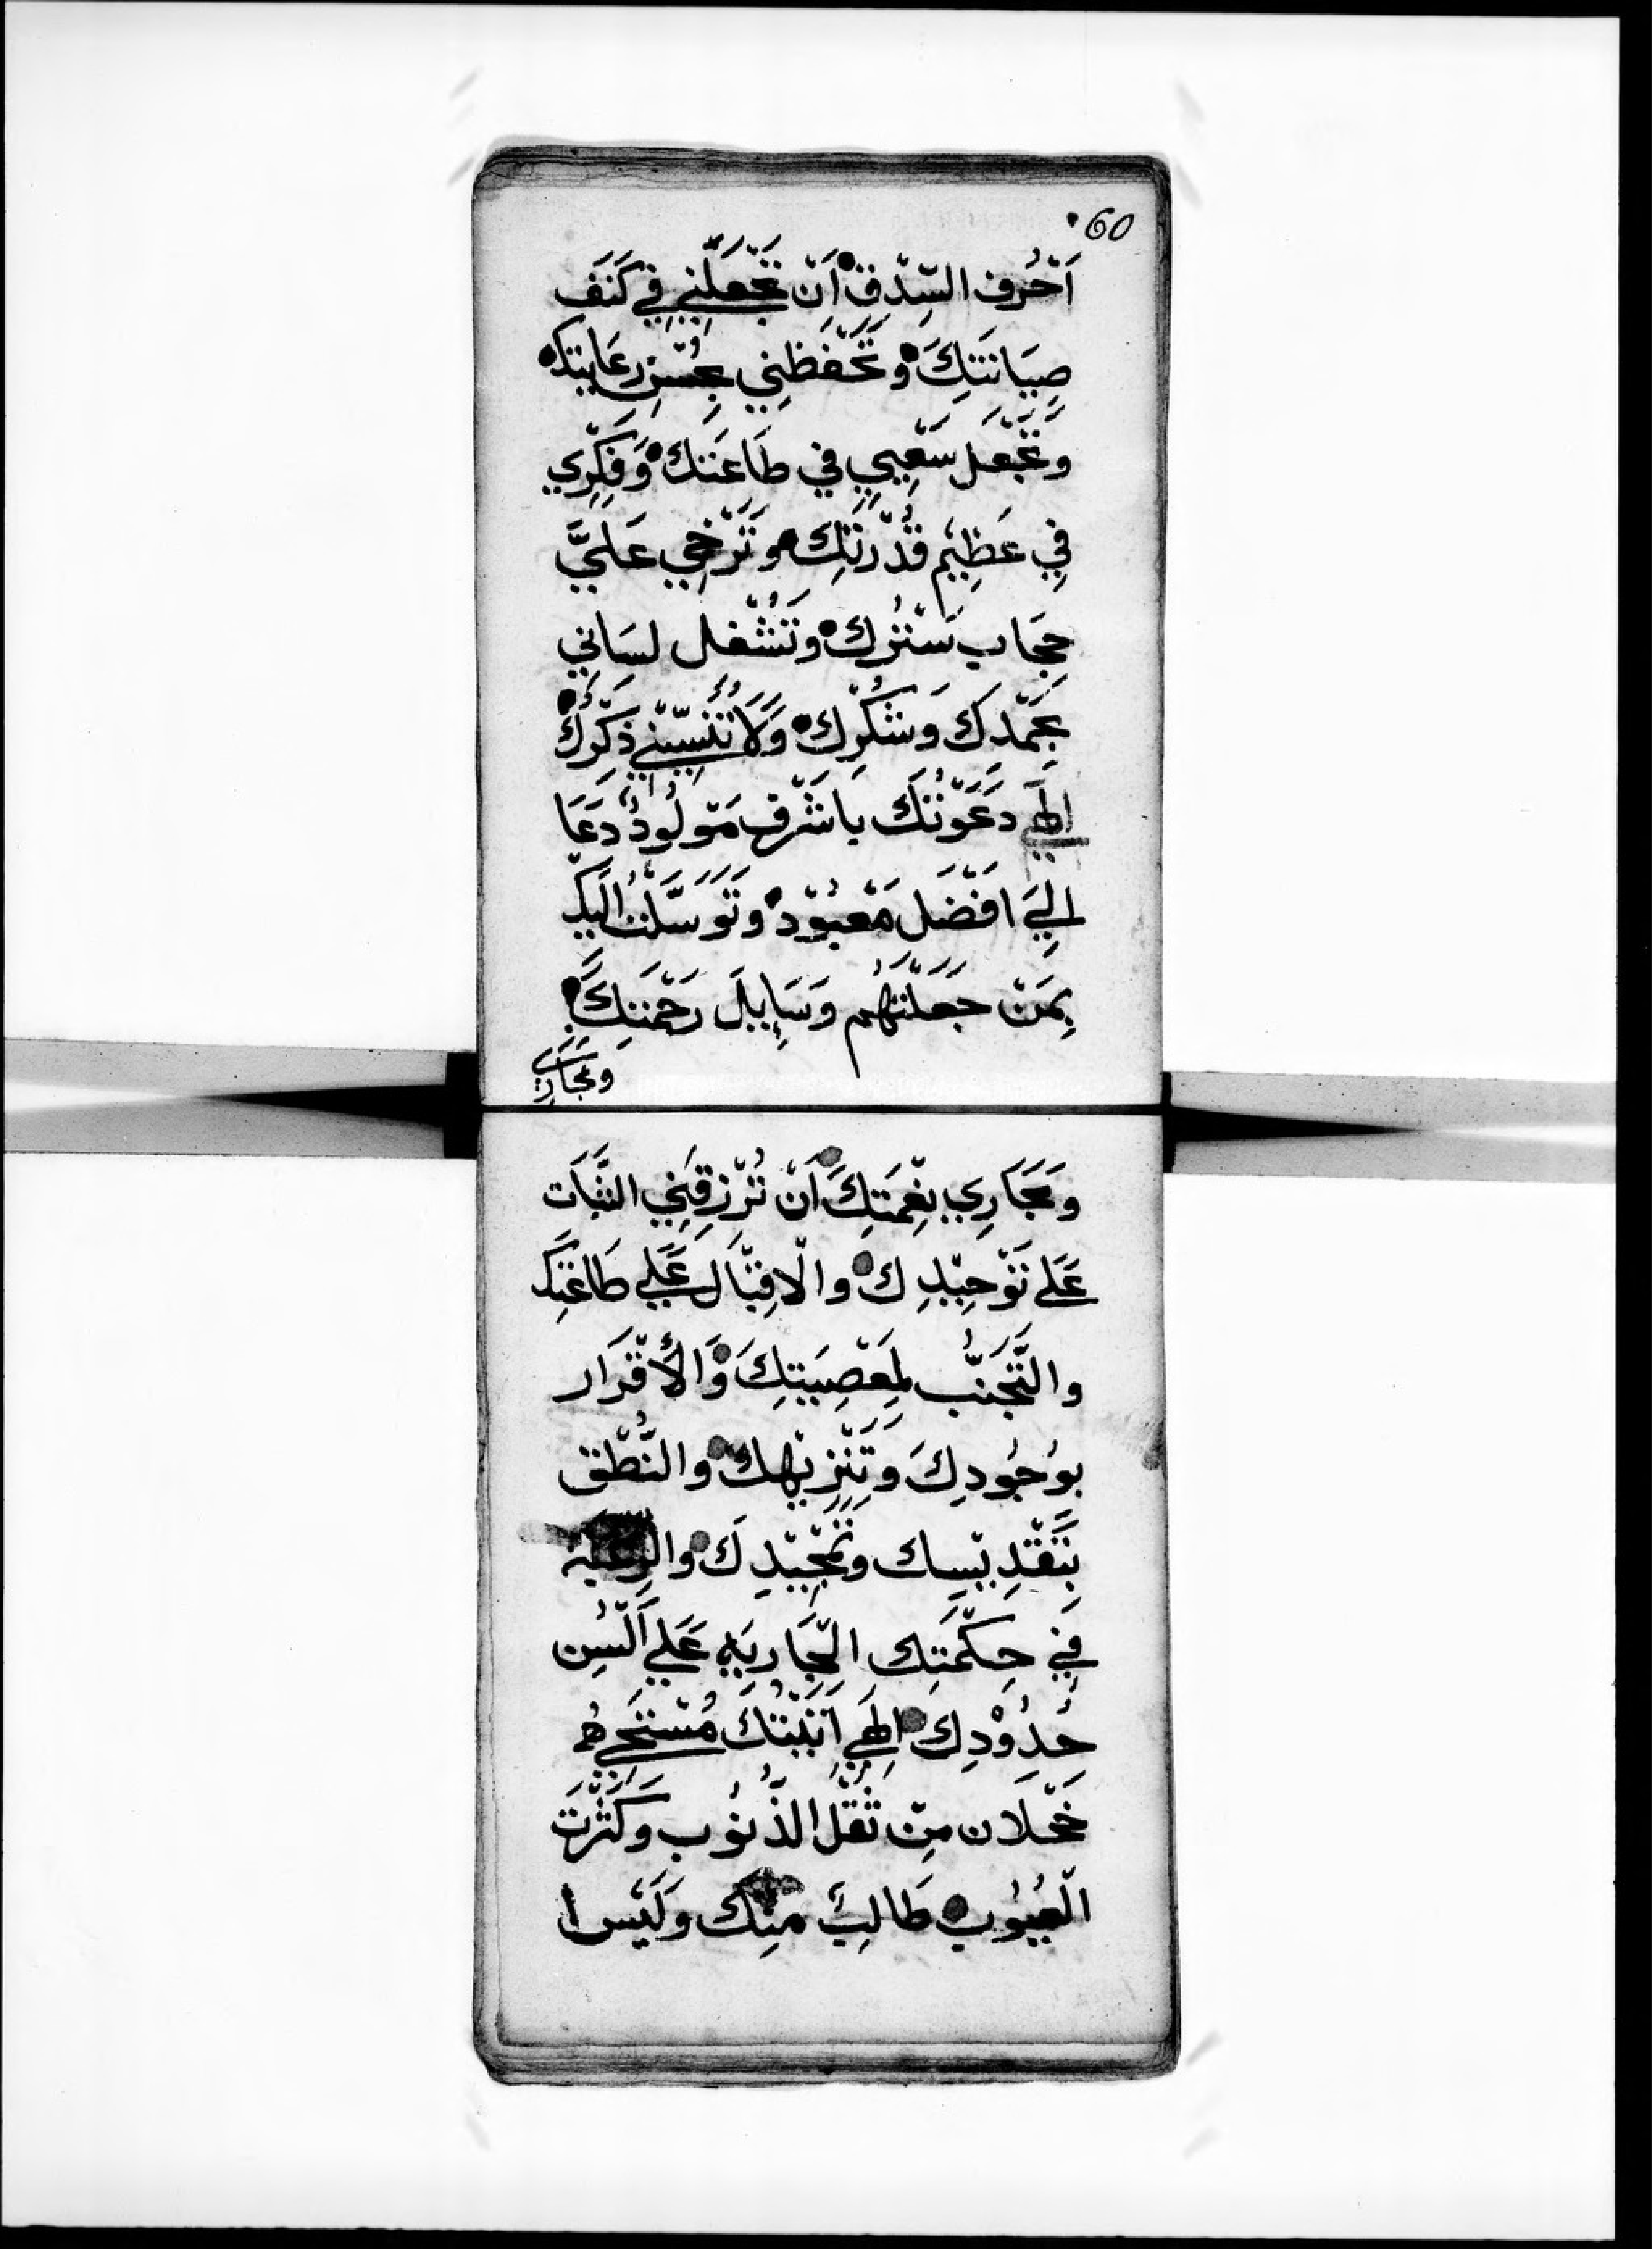 60
اَحْرُف السِّدْق اَنْ تَجْعَلَنِي فِي كَنَفَ
صِيَانَتَكَ وَتَحْفَظنِي بِحُسْنِ رِعَايتك
وَتَجْعَل سَعْيِي في طَاعَتك وَفِكِرْي
فِي عَظِيْم قُدْرَتَكِ وتَرْخِي عَلَيَّ
حِجَاب سَتْرُك وتَشْغل لسَاني
بِحَمْدكَ وَشُكْرِك وَلَا تُنْسِيْنِي ذِكْرَكَ
الهَي دَعَوْتُكَ باشْرف مَوْلُودٌ دَعَا
اليَ افْضَل مَعْبُوْد وتَوَسَّلْتُ الَيْك
بِمَنْ جَعَلْتَهُم وَسَايِلَ رَحْمَتِكَ
ومجَاري
ومَجَارِي نِعْمَتِكَ اَنْ تُرْزِقَنِي الثَّبَات
عَلي تَوْحِيْدِك والْاقِبْاَل عَلَي طَاعَتِكَ
والتَّجَنُّب لِمَعْصِيَتِكَ وَالْأقْرَار
بوُجُودِكَ وتَنْزِيْهك والنُّطْق
بِتَقْدِيْسِك وتَمْجِيْدِكَ والرِعْيه
فِي حِكْمَتِك الْجَارِيَه عَلَي اَلْسُن
حُدُوْدِكَ الهَي اَتَيْتُكَ مُسْتَحي
خَجْلَان مِنْ ثُقْل الذُنوُب وكَثْرَت
الْعُيوُب طَالِبٌ مِنْكَ وَلَيْس ا